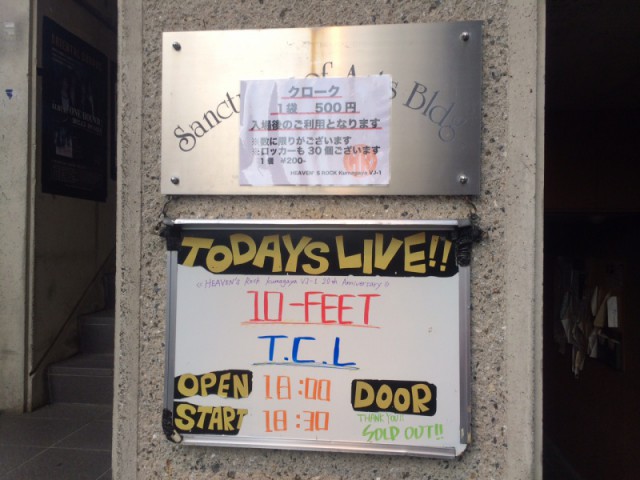 Sanctuary of Arts Bldg
クローク
1袋 500円
入場後のご利用となります
※数に限りがございます
※ロッカーも30個ございます
1個 ¥200-
HEAVEN'S ROCK Kumagaya VJ-1
TODAYS LIVE!!
HEAVEN'S Rock Kumagaya VJ-1 20th Anniversary
10-FEET
T.C.L
OPEN 18:00 DOOR
START 18:30 THANK YOU!!
SOLD OUT!!